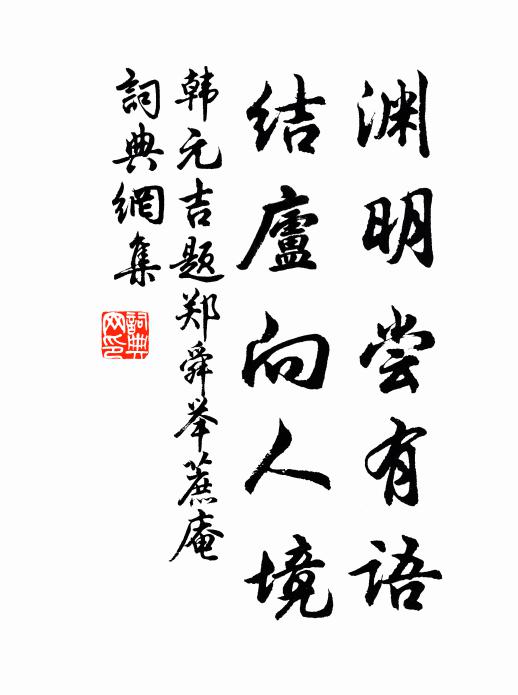 渊明尝有语
结廬向人境
韩元吉题郑舜举蔗庵
詞典網集
詞典網印